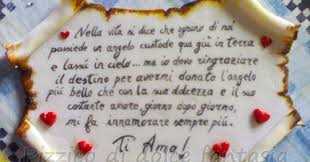 Nella vita si dice che ognuno di noi
possiede un angelo custode qua giù in terra
e lassù in cielo... ma io devo ringraziare
il destino per avermi donato l'angelo
più bello che con la sua dolcezza e il suo
costante amore, giorno dopo giorno,
mi fa innamorare sempre più.
Ti Amo!
Pizzico di dolce fantasia